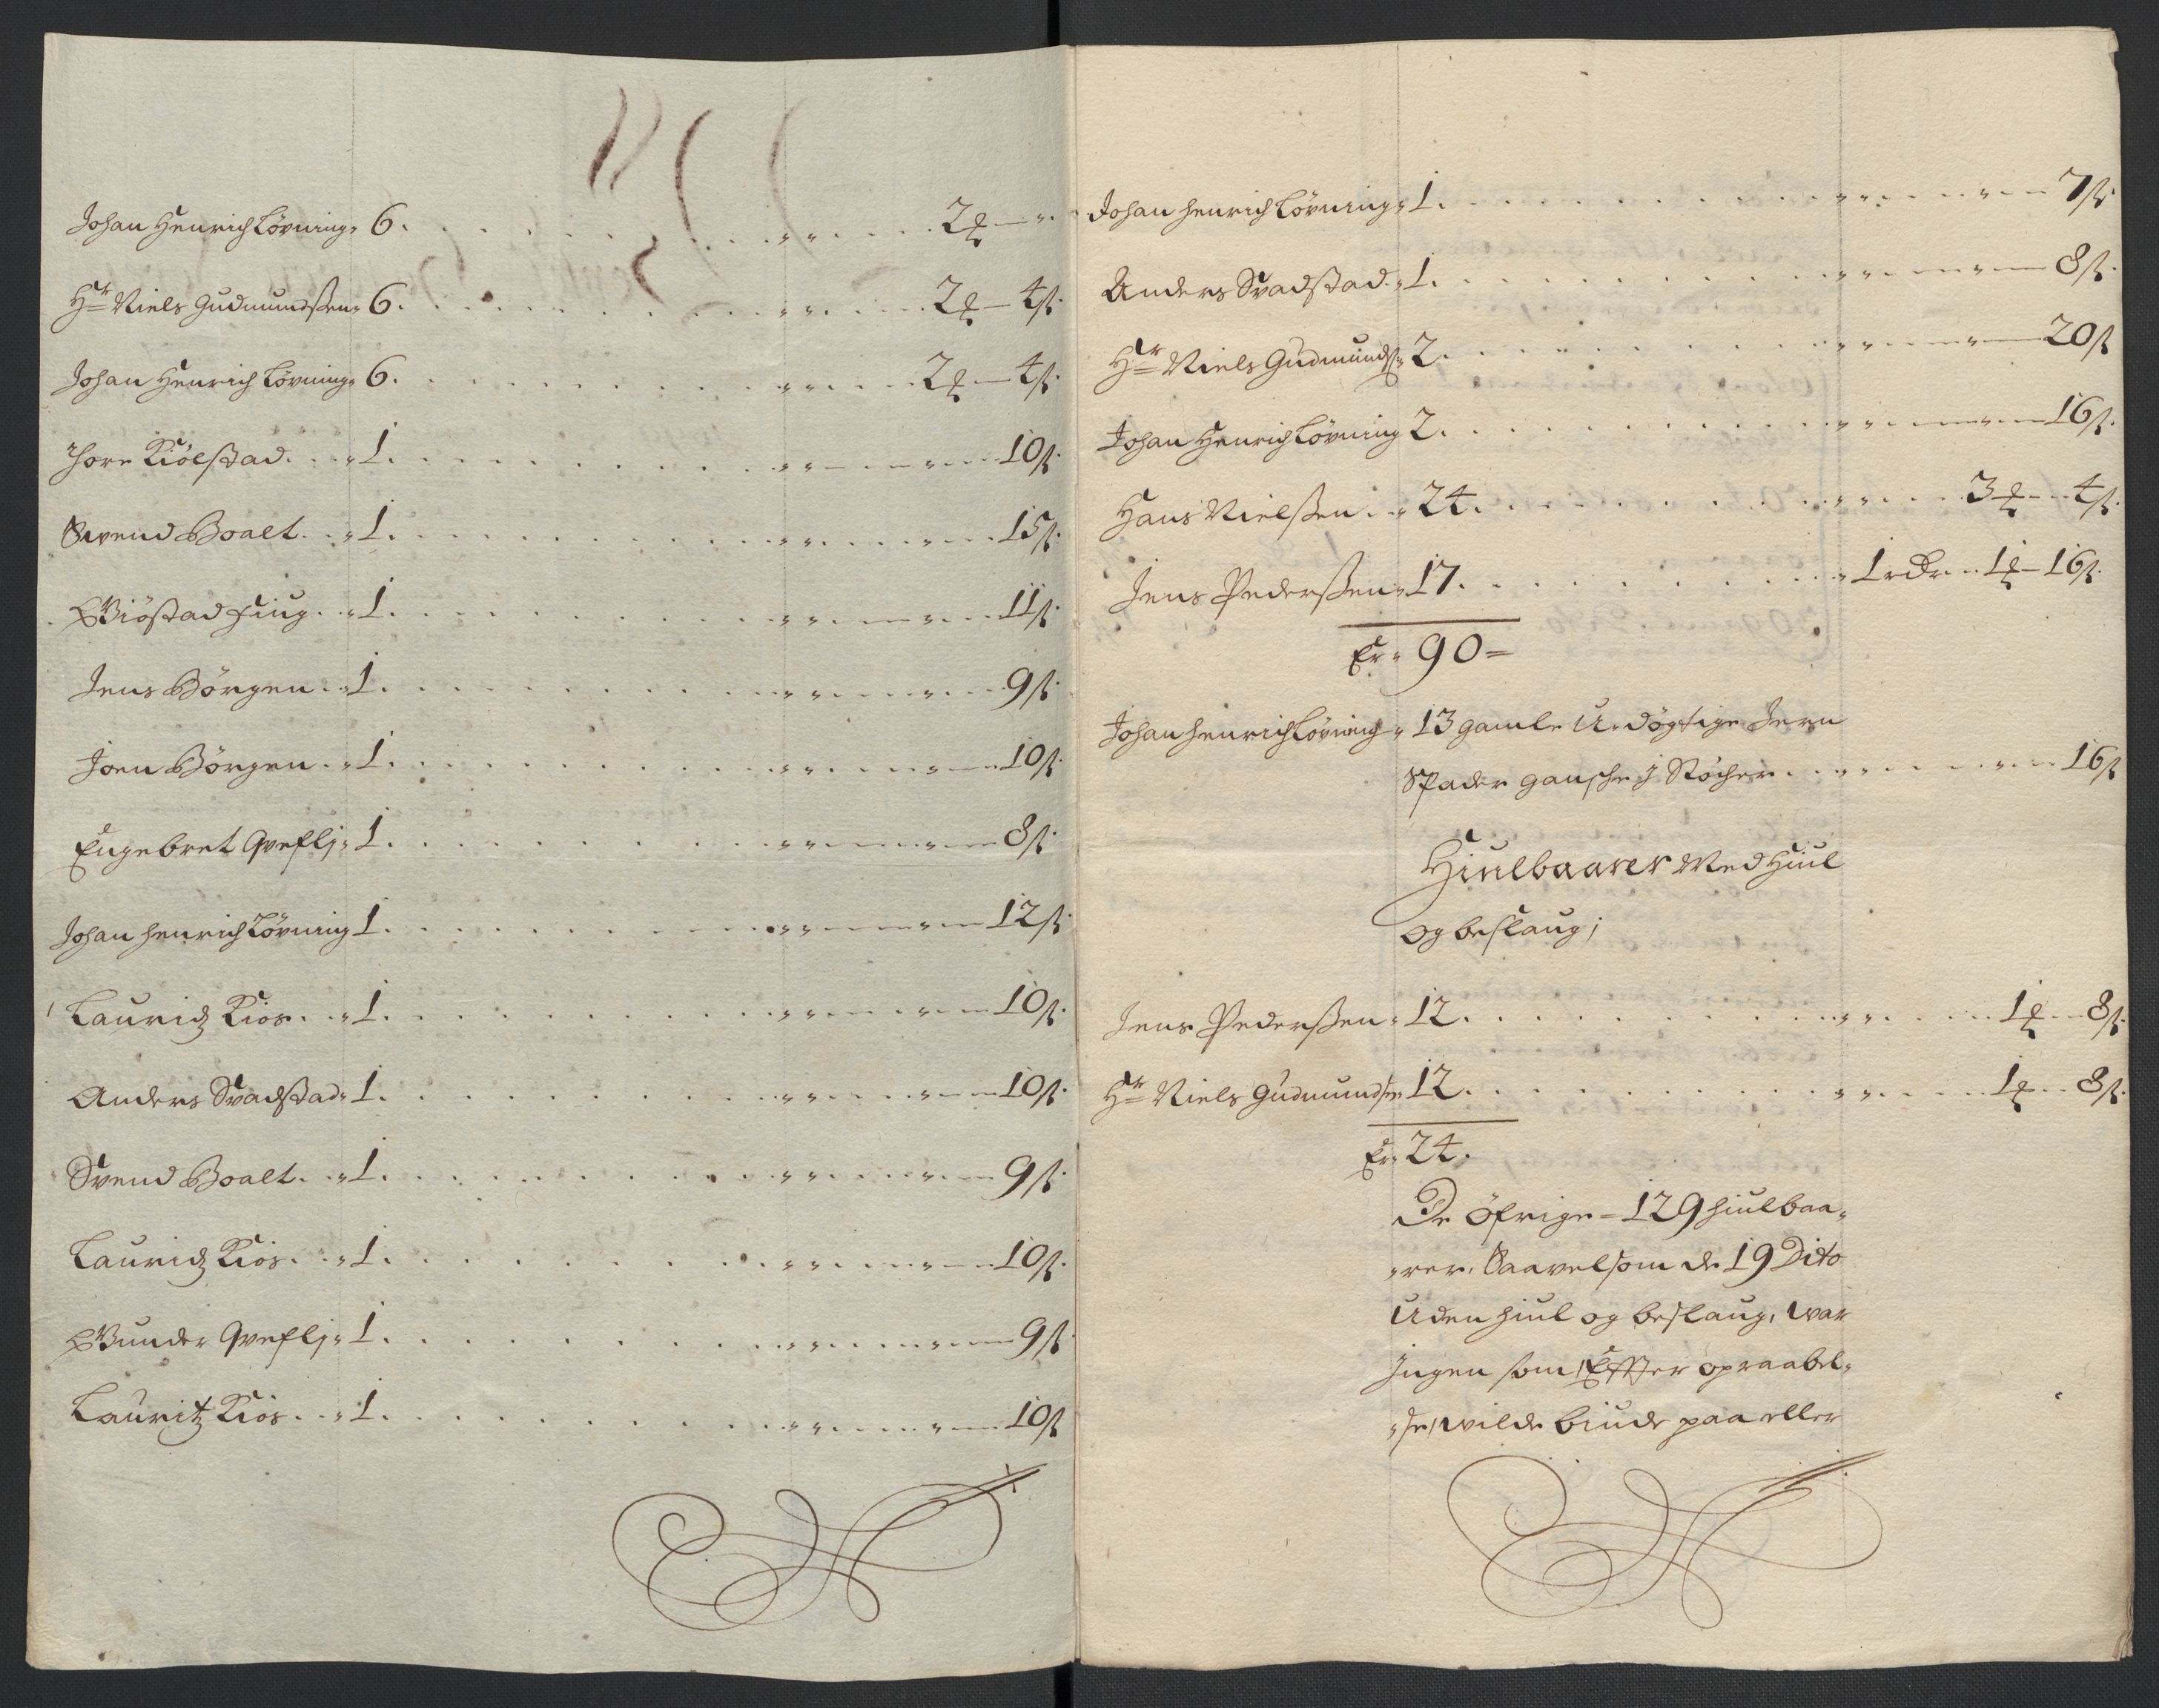 Johan Henrich Lövning 6 . . . 2 ℔ — "
Hr Niels Gudmundßen 6 . . . 2 ℔ — 4 ß
Johan Henrich Lövning 6 . . . 2 ℔ — 4 ß
Thore Kiölstad 1 . . . 10 ß
Svend Boalt 1 . . . 15 ß
1 . . . 11 ß
Jens Börgen 1 . . . 9 ß
Joen Börgen 1 . . . 10 ß
Engebret Qvefli 1 . . . 8 ß
Johan Henrich Lövning 1 . . . 12 ß
Lauridz Kios 1 . . . 10 ß
Anders Svadstad 1 . . . 10 ß
Svend Boalt 1 . . . 9 ß
Lauridz Kiös 1 . . . 10 ß
Gunder Qvefli 1 . . . 9 ß
Lauritz Kiös 1 . . . 10 ß
Johan Henrich Lövning 1 . . . 7 ß
Anders Svadstad 1 . . . 8 ß
Hr Niels Gudmundß 2 . . . 20 ß
Johan Henrich Lövning 2 . . . 16 ß
Hans Nielßen 24 . . . 3 ℔ — 4 ß
Jens Pederßen 17 . . . 1 rdr 1 ℔ — 16 ß
Er 90 =
Johan Henrich Lövning 13 gamle Udögtige Jern
Spader gansche j Støcher . . . 16 ß
Hiulbaarer Med Hiul
og beslaug;
Jens Pederßen 12 . . . 1 ℔ — 8 ß
Hr Niels Gudmundsen 12 . . . 1 ℔ — 8 ß
Er 24 .
De öfrige = 129 hiulbaa„
„rer, Saavelsom de 19 Dito
Uden hiul og beslaug, war
Jngen som, Effter opraabel„
„se, wilde biude paa eller